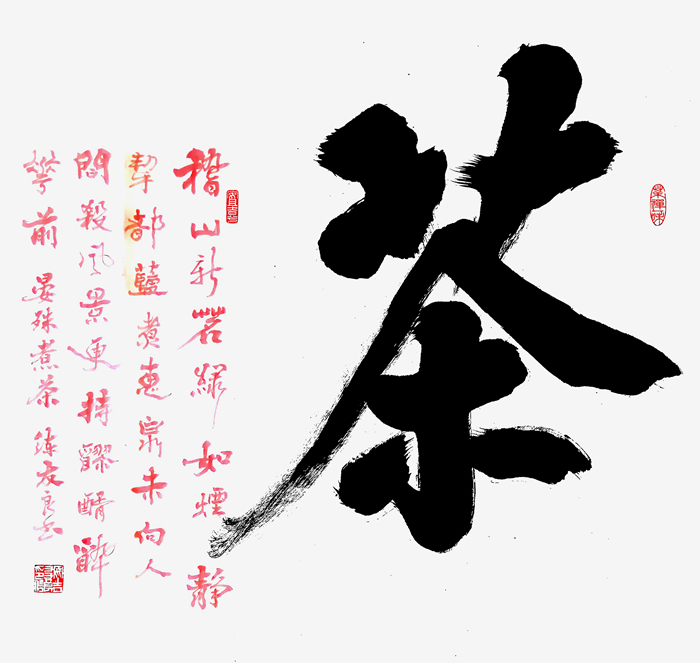 茶
稽山新茗綠如煙靜
挈都藍煮惠泉未向人
間殺风景更持醪醑醉
華前晏殊煮茶練友良书